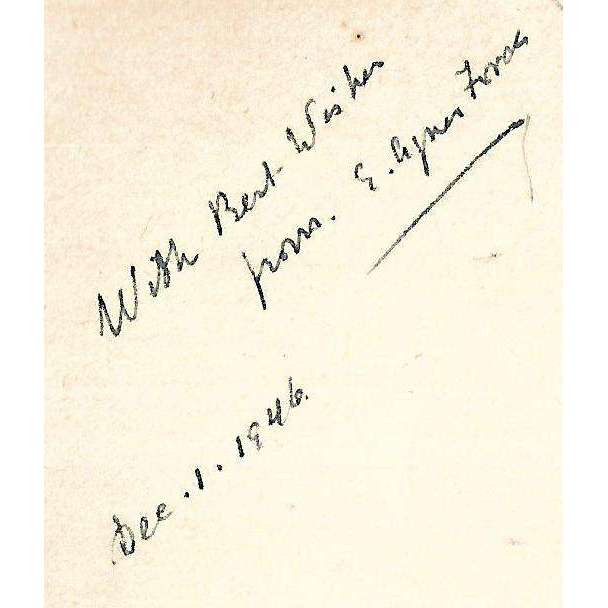 With Best Wishes
from. E. Agnes
Dec. 1. 1946.